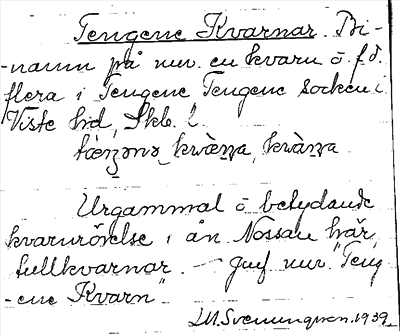 Tengene Kvarnar. Bi-
-namn på nuv. en kvarn o f.d.
flera i Tengene Tengene socken i
Viste hd, Skb. l.
Urgammal o betydande
kvarnrörelse i ån Nossan här,
tullkvarnar. - Jmf nuv. "Teng
-ene Kvarn".
LM. Svenungson. 1939.